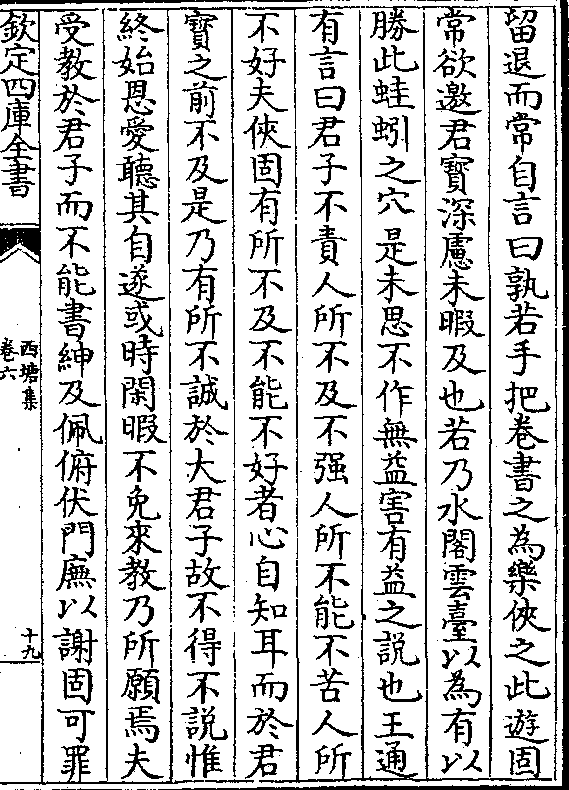 留退而常自言曰孰若手把卷書之為樂俠之此遊固
常欲邀君寶深慮未暇及也若乃水閣雲臺以為有以
勝此蛙蚓之穴是未思不作無益害有益之說也王通
有言曰君子不責人所不及不强人所不能不苦人所
不好夫俠固有所不及不能不好者心自知耳而於君
寶之前不及是乃有所不誠於大君子故不得不說惟
終始恩愛聽其自遂或時閑暇不免來教乃所願焉夫
受教於君子而不能書紳及佩俯伏門廡以謝固可罪
欽定四庫全書
西塘集
卷六
十九